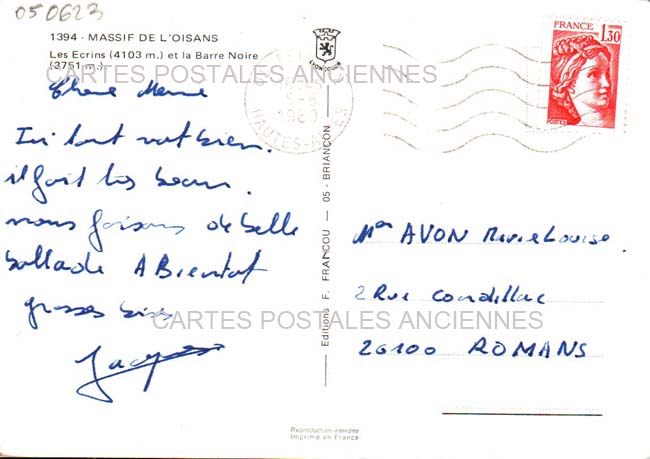 050623
1394 - MASSIF DE L'OISANS
Les Ecrins (4103 m.) et la Barre Noire
(3751 m.)
CARTES POSTALES ANCIENNES
Ici tout vat bien.
il fait tres beau.
nous faisons de belle
ballade A Bientot
grosses bises
Jacques
LYONCOLOR
1980
HAUTES-ALPES
FRANCE
1,30
POSTES
Editions F. FRANCOU - 05 - BRIANÇON
Mme AVON Marie Louise.
2 Rue Condillac
26100 ROMANS
CARTES POSTALES ANCIENNES
Reproduction interdite
Imprimé en France